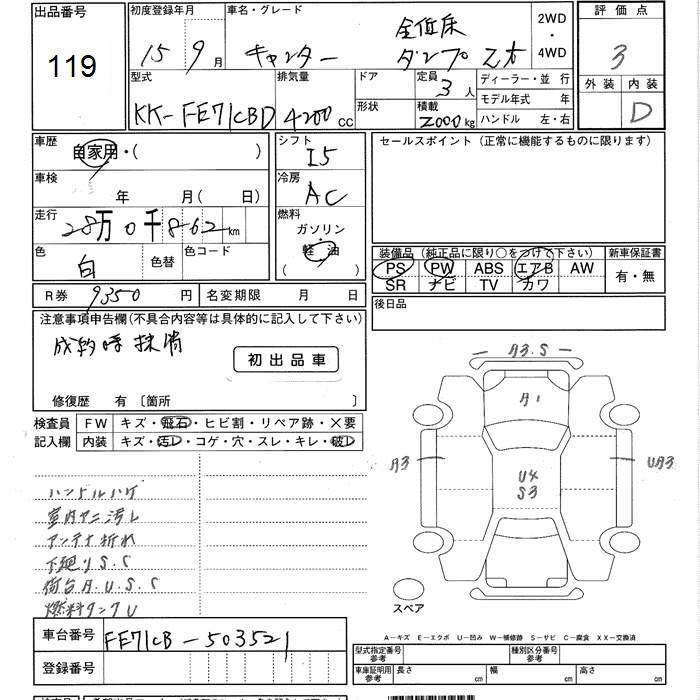 出品番号 119
初度登録年月 15 9月
車名・グレード キャンター 全低床 ダンプ 2t
2WD・4WD
評価点 3
外装 内装 D
型式 KK-FE71CBD
排気量 4200cc
ドア
形状
定員 3人
積載 2000kg
ディーラー・並行
モデル年式 年
ハンドル 左・右
車歴 自家用・( )
シフト I5
セールスポイント(正常に機能するものに限ります)
車検 年 月( 日)
冷房 AC
走行 28万0千862km
燃料 ガソリン・軽油 ( )
色 白 色替 色コード
装備品(純正品に限り○をつけて下さい)
PS PW ABS エアB AW
SR ナビ TV カワ
新車保証書 有・無
R券 9350円 名変期限 月 日
後日品
注意事項申告欄(不具合内容等は具体的に記入して下さい)
成約時抹消
初出品車
修復歴 有 〔箇所 〕
検査員記入欄
FW キズ・飛石・ヒビ割・リペア跡・×要
内装 キズ・汚レ・コゲ・穴・スレ・キレ・破レ
ハンドルハゲ
室内ヤニ汚レ
アンテナ折れ
下廻りS.C
荷台A.U.S.C
燃料タンクU
A3.S
A1
A3
U4
S3
UA3
スペア
A-キズ E-エクボ U-凹み W-補修跡 S-サビ C-腐食 XX-交換済
車台番号 FE71CB-503521
登録番号
型式指定番号 参考
種別区分番号 参考
車庫証明用 参考 長さ cm 幅 cm 高さ cm